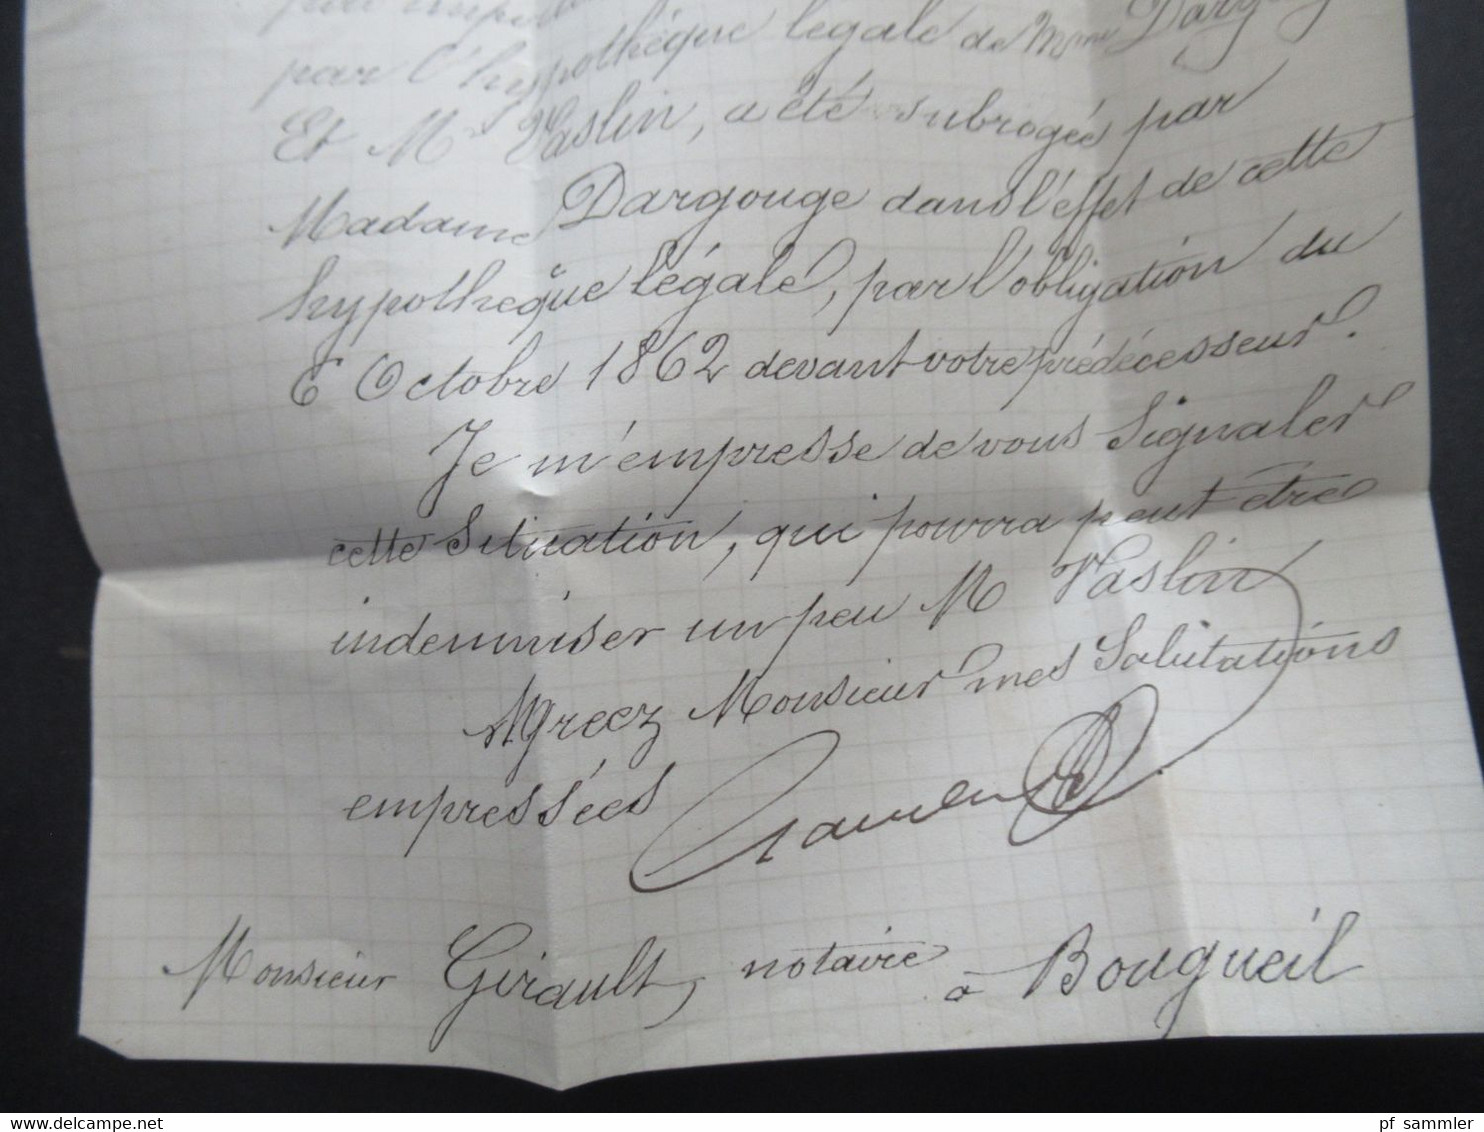 par l'hypothèque légale de Mme
Et M. Vaslin, a été subrogée par
Madame Dargouge dans l'effet de cette
hypothèque légale, par l'obligation du
6 Octobre 1862 devant votre prédécesseur.
Je m'empresse de vous Signaler
cette Situation, qui pourra peut être
indemniser un peu M Vaslin
Agreez Monsieur mes Salutations
empressées
Monsieur Girault, notaire à Bourgueil
delcampe.net
pf_sammler